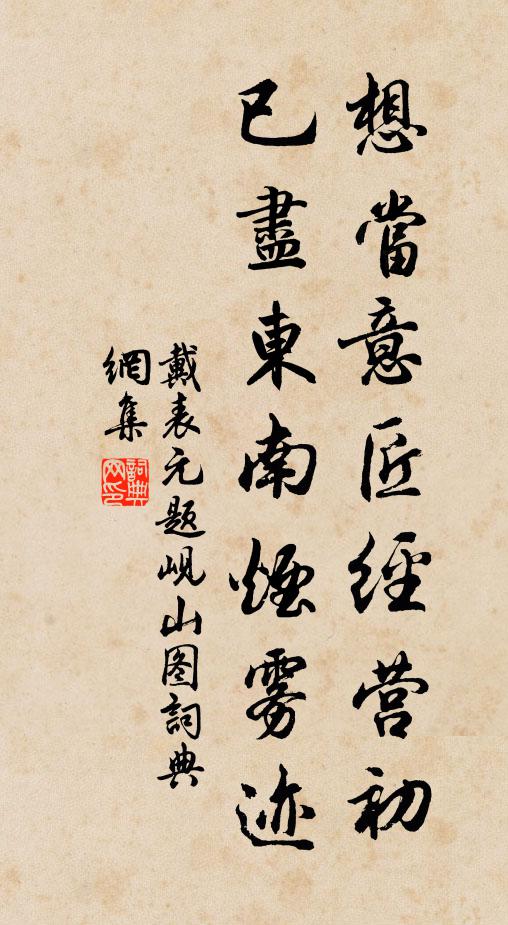 想當意匠經营初
已盡東南煙雾迹
戴表元题岘山图詞典
網集
詞典
网印